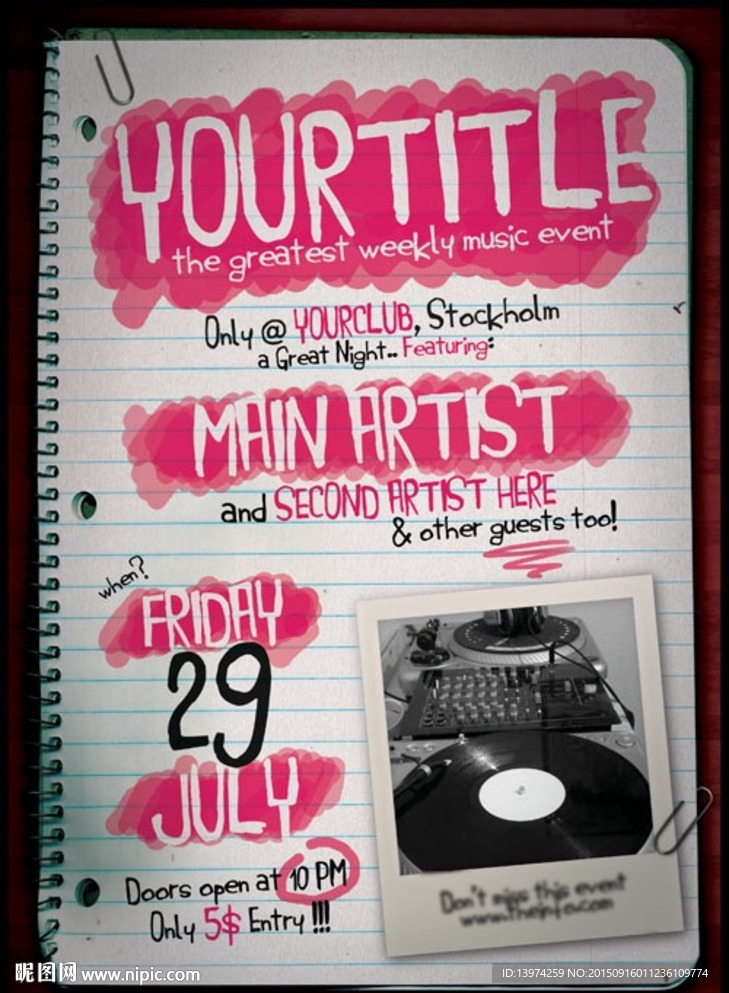 YOURTITLE
the greatest weekly music event
Only @ YOURCLUB, Stockholm
a Great Night.. Featuring:
MAIN ARTIST
and SECOND ARTIST HERE
& other guests too!
when?
FRIDAY
29
JULY
Doors open at 10 PM
Only 5$ Entry !!!
Don't miss this event
www.theinfo.com
昵图网 www.nipic.com
ID:13974259 NO:20150916011236109774